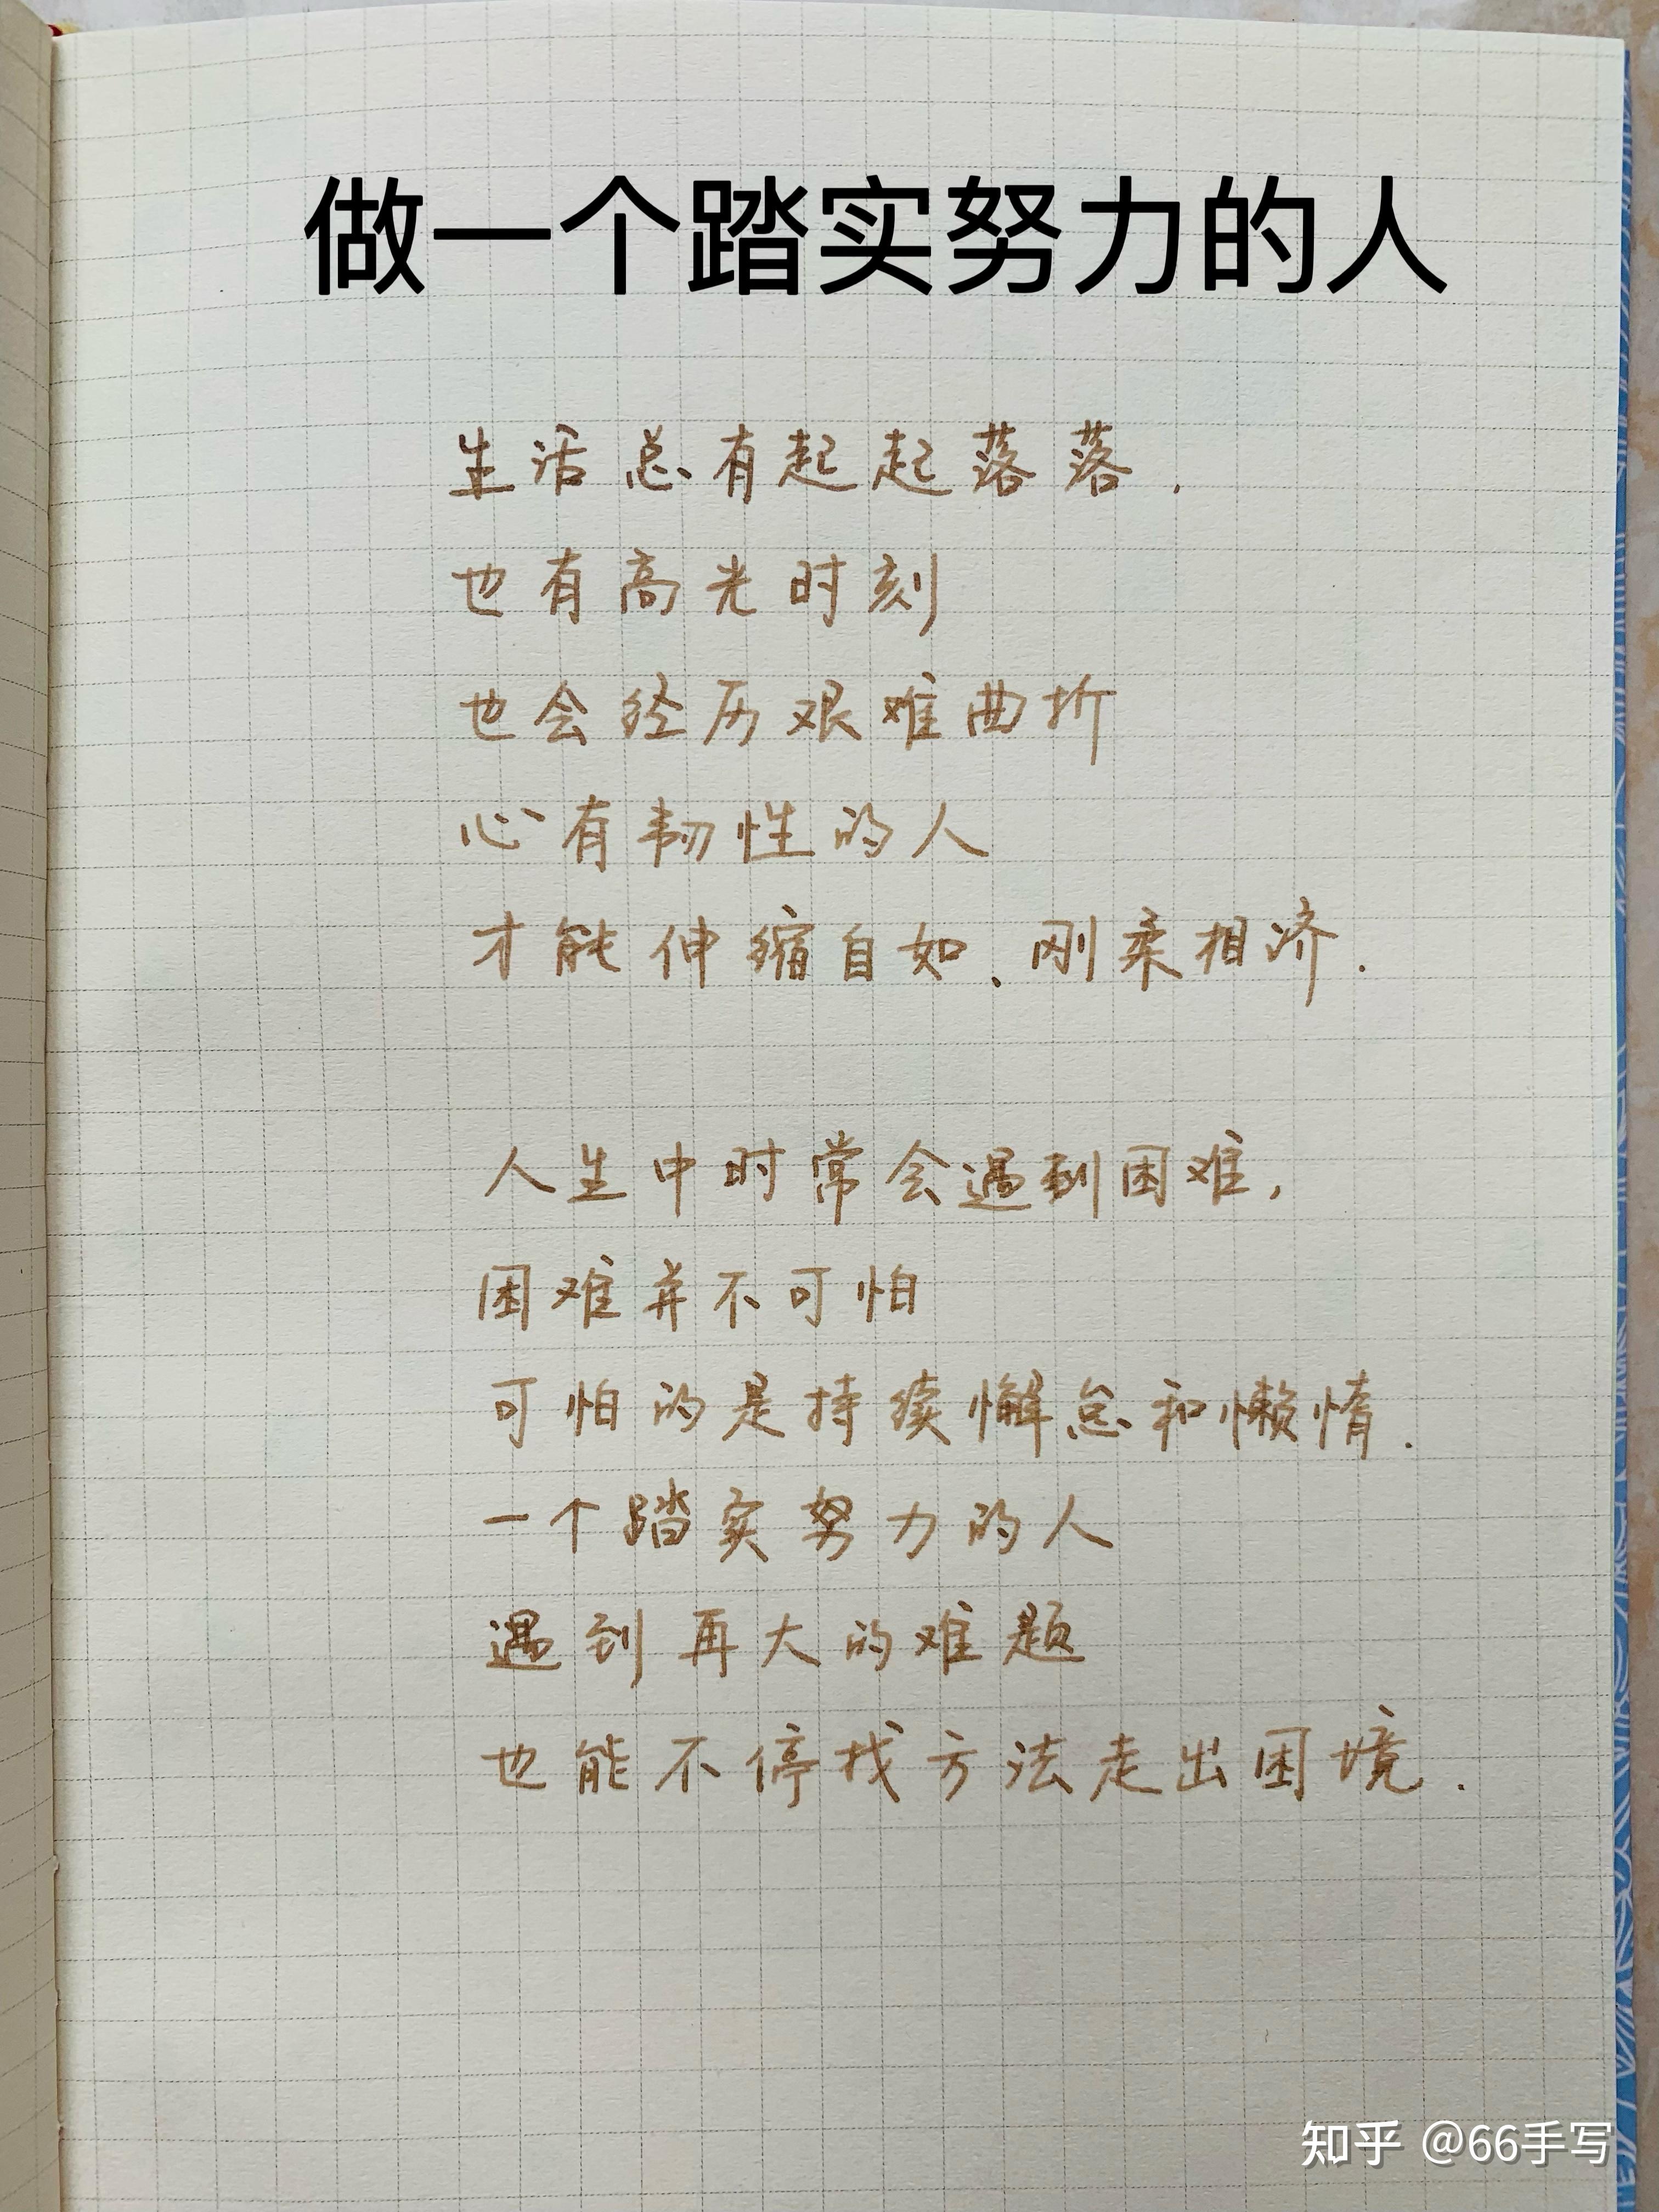 做一个踏实努力的人
生活总有起起落落.
也有高光时刻
也会经历艰难曲折
心有韧性的人
才能伸缩自如、刚柔相济.
人生中时常会遇到困难,
困难并不可怕
可怕的是持续懈怠和懒惰.
一个踏实努力的人
遇到再大的难题
也能不停找方法走出困境.
知乎 @66手写